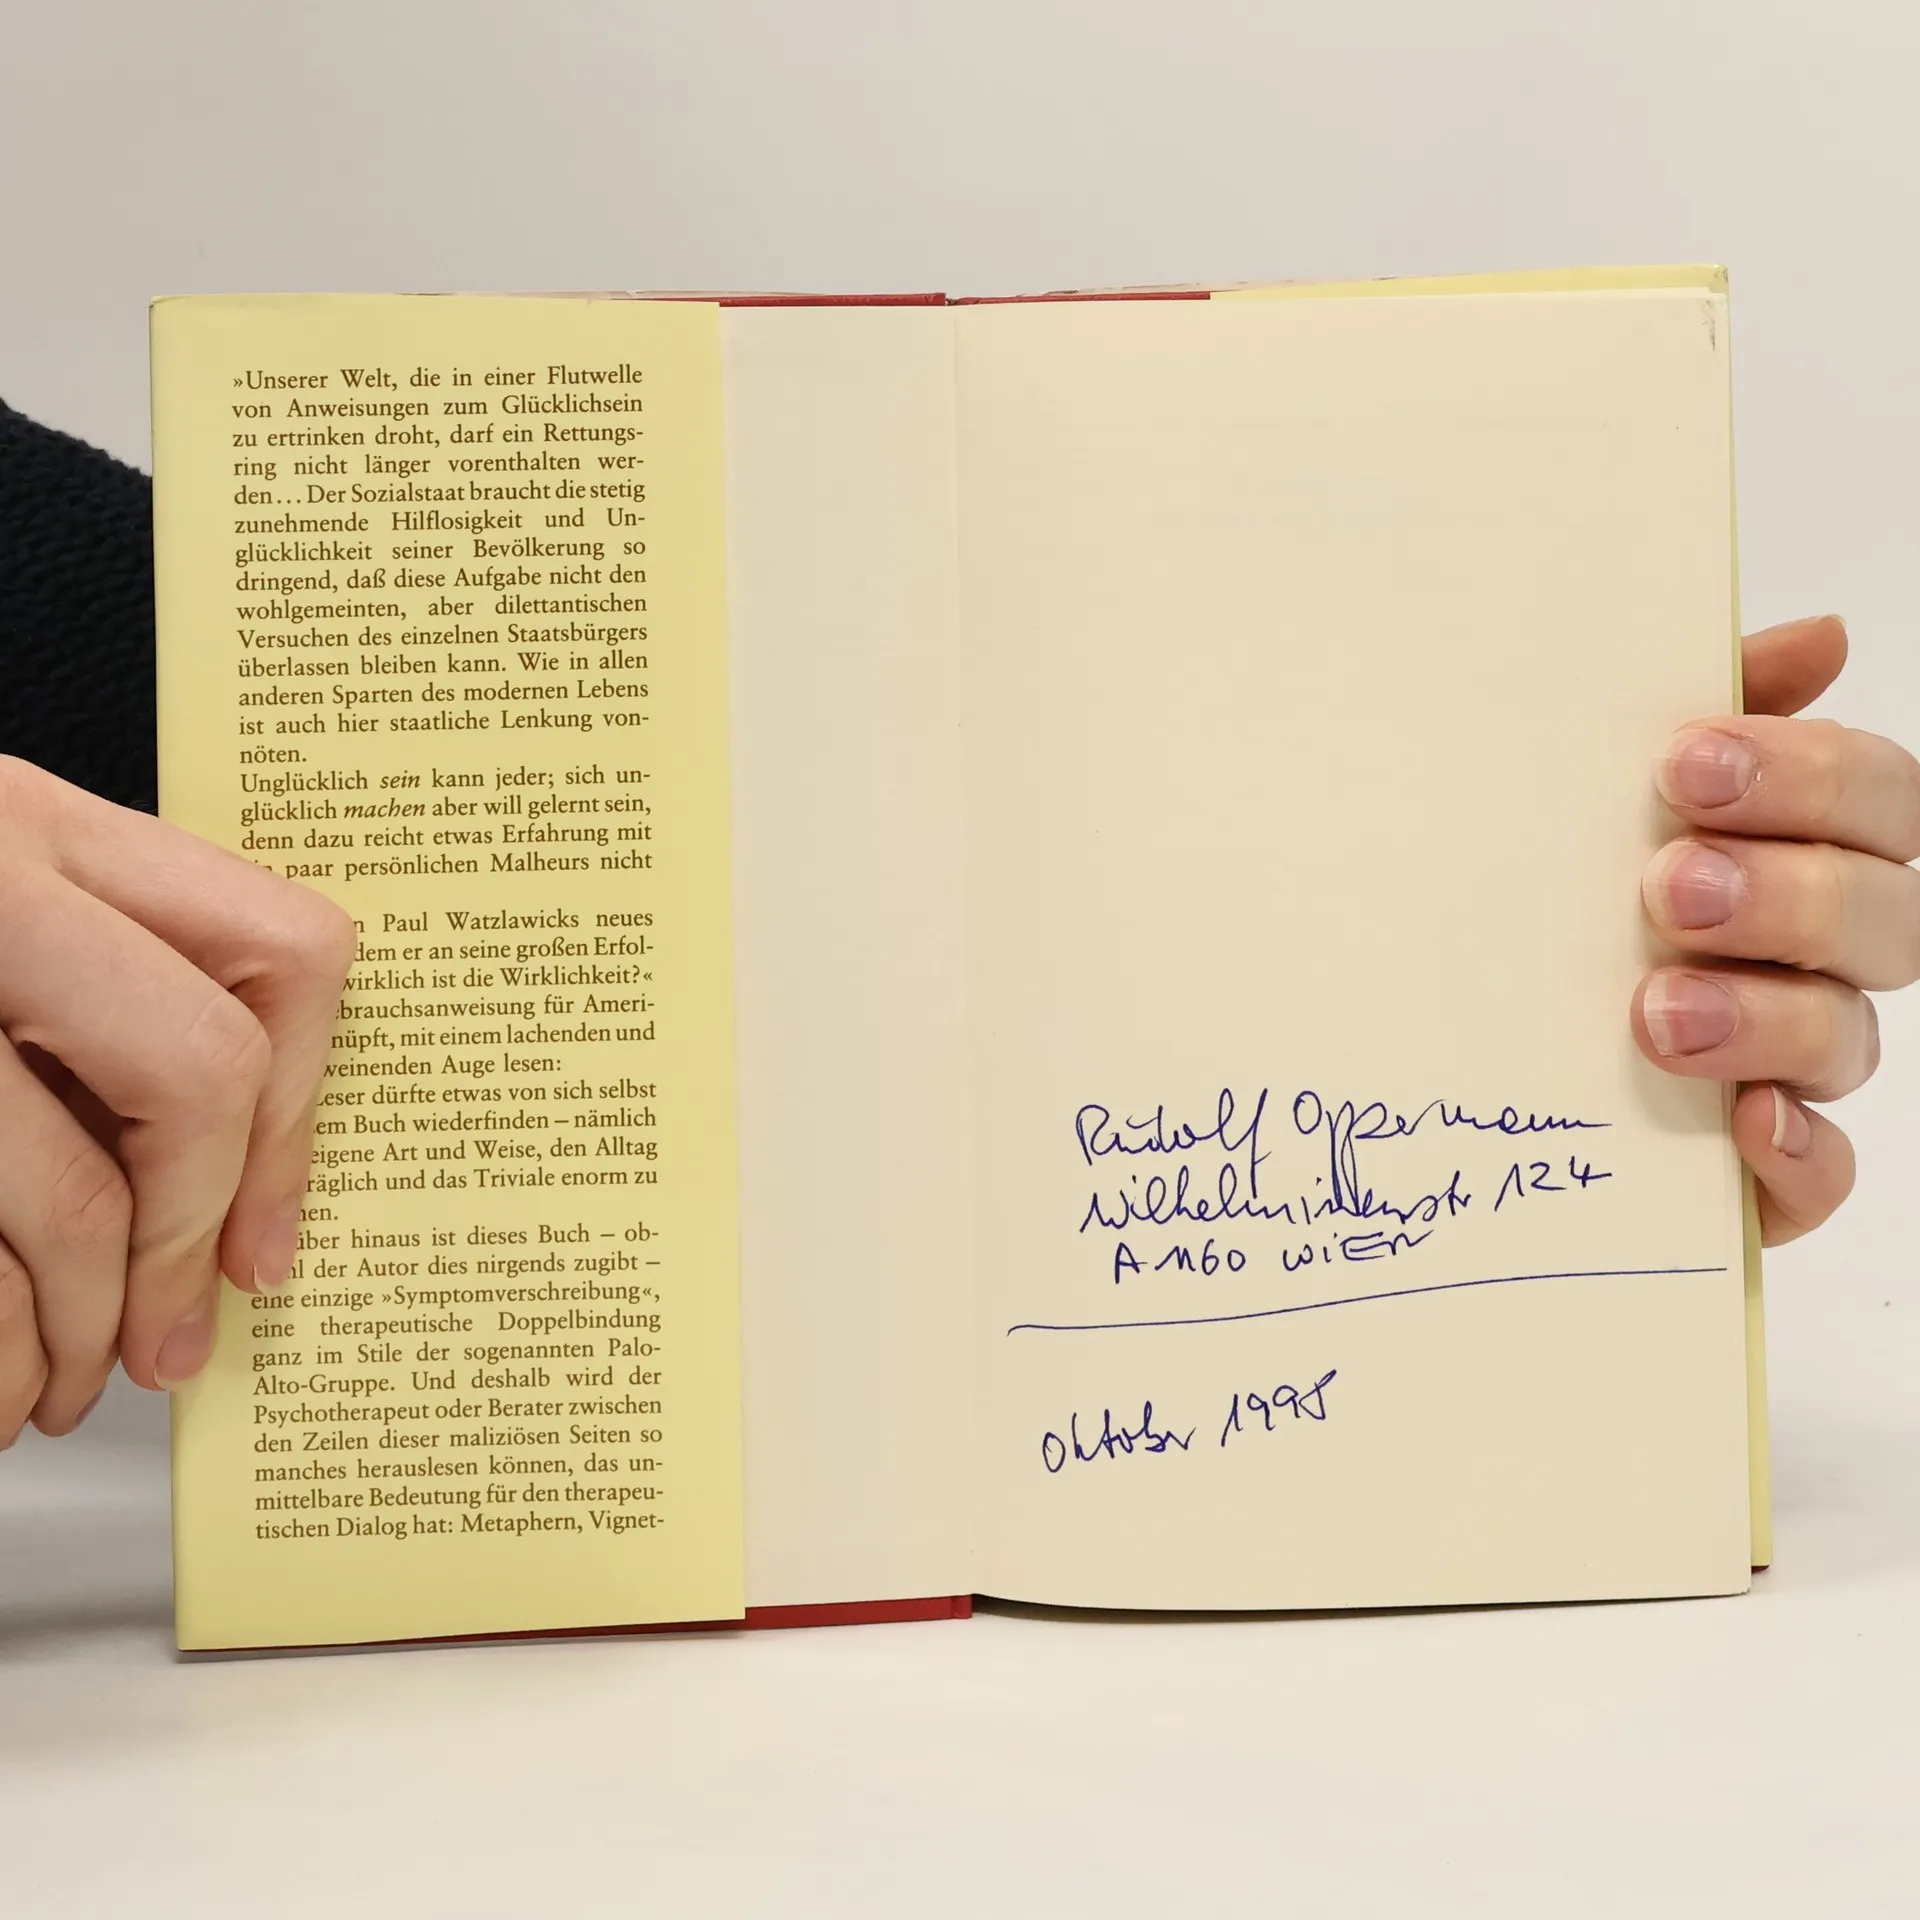 »Unserer Welt, die in einer Flutwelle
von Anweisungen zum Glücklichsein
zu ertrinken droht, darf ein Rettungs-
ring nicht länger vorenthalten wer-
den... Der Sozialstaat braucht die stetig
zunehmende Hilflosigkeit und Un-
glücklichkeit seiner Bevölkerung so
dringend, daß diese Aufgabe nicht den
wohlgemeinten, aber dilettantischen
Versuchen des einzelnen Staatsbürgers
überlassen bleiben kann. Wie in allen
anderen Sparten des modernen Lebens
ist auch hier staatliche Lenkung von-
nöten.
Unglücklich sein kann jeder; sich un-
glücklich machen aber will gelernt sein,
denn dazu reicht etwas Erfahrung mit
paar persönlichen Malheurs nicht
Paul Watzlawicks neues
dem er an seine großen Erfol-
wirklich ist die Wirklichkeit?«
brauchsanweisung für Ameri-
nüpft, mit einem lachenden und
weinenden Auge lesen:
eser dürfte etwas von sich selbst
em Buch wiederfinden – nämlich
eigene Art und Weise, den Alltag
räglich und das Triviale enorm zu
hen.
über hinaus ist dieses Buch – ob-
hl der Autor dies nirgends zugibt –
eine einzige »Symptomverschreibung«,
eine therapeutische Doppelbindung
ganz im Stile der sogenannten Palo-
Alto-Gruppe. Und deshalb wird der
Psychotherapeut oder Berater zwischen
den Zeilen dieser maliziösen Seiten so
manches herauslesen können, das un-
mittelbare Bedeutung für den therapeu-
tischen Dialog hat: Metaphern, Vignet-
Rudolf Oppermann
Wilhelminenstr 124
A 1160 WIEN
Oktober 1998